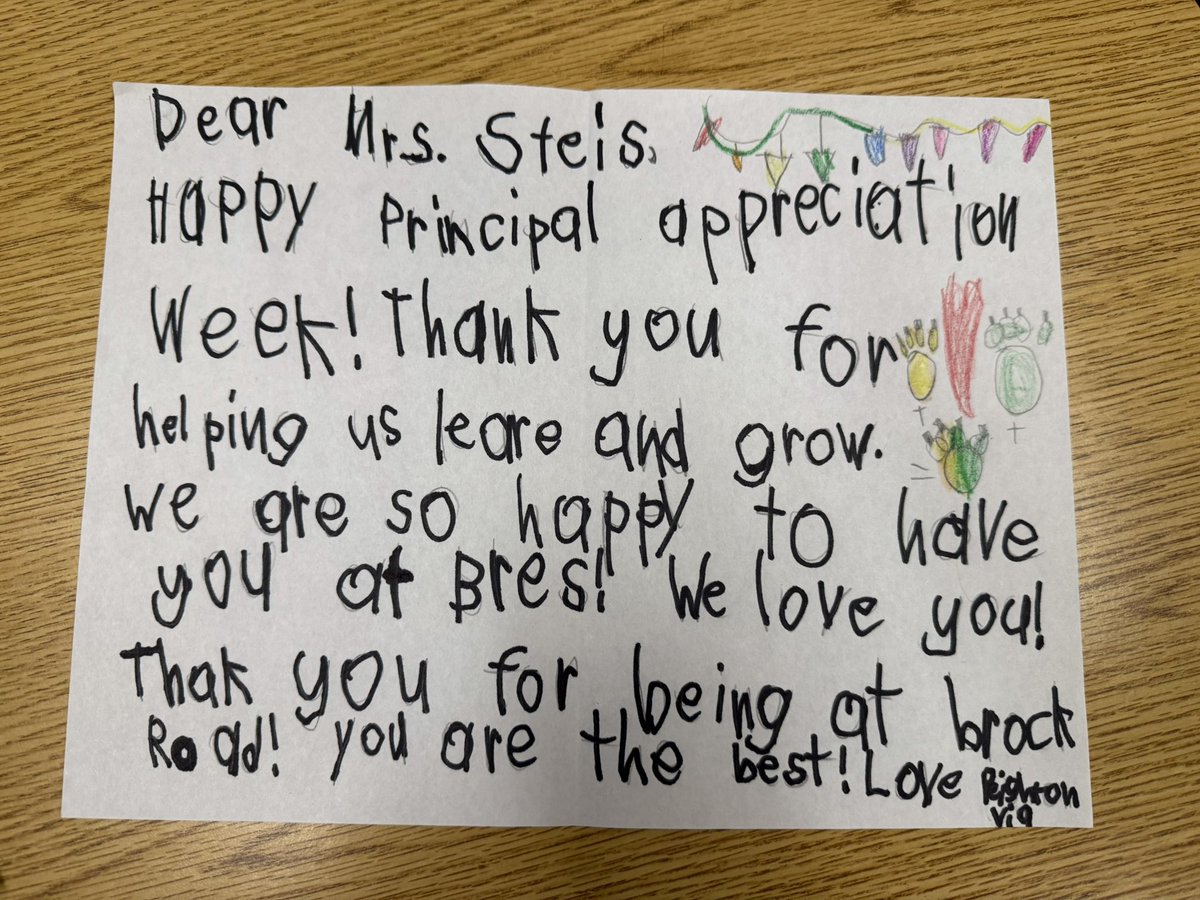 Dear Mrs. Steis,
Happy Principal appreciation
Week! Thank you for
helping us leare and grow.
We are so happy to have
you at Bres! We love you!
Thak you for being at brock
Road! you are the best! Love Peighton
Vig